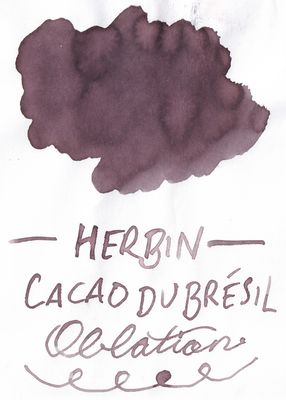 — HERBIN —
CACAO DU BRÉSIL
Oblation